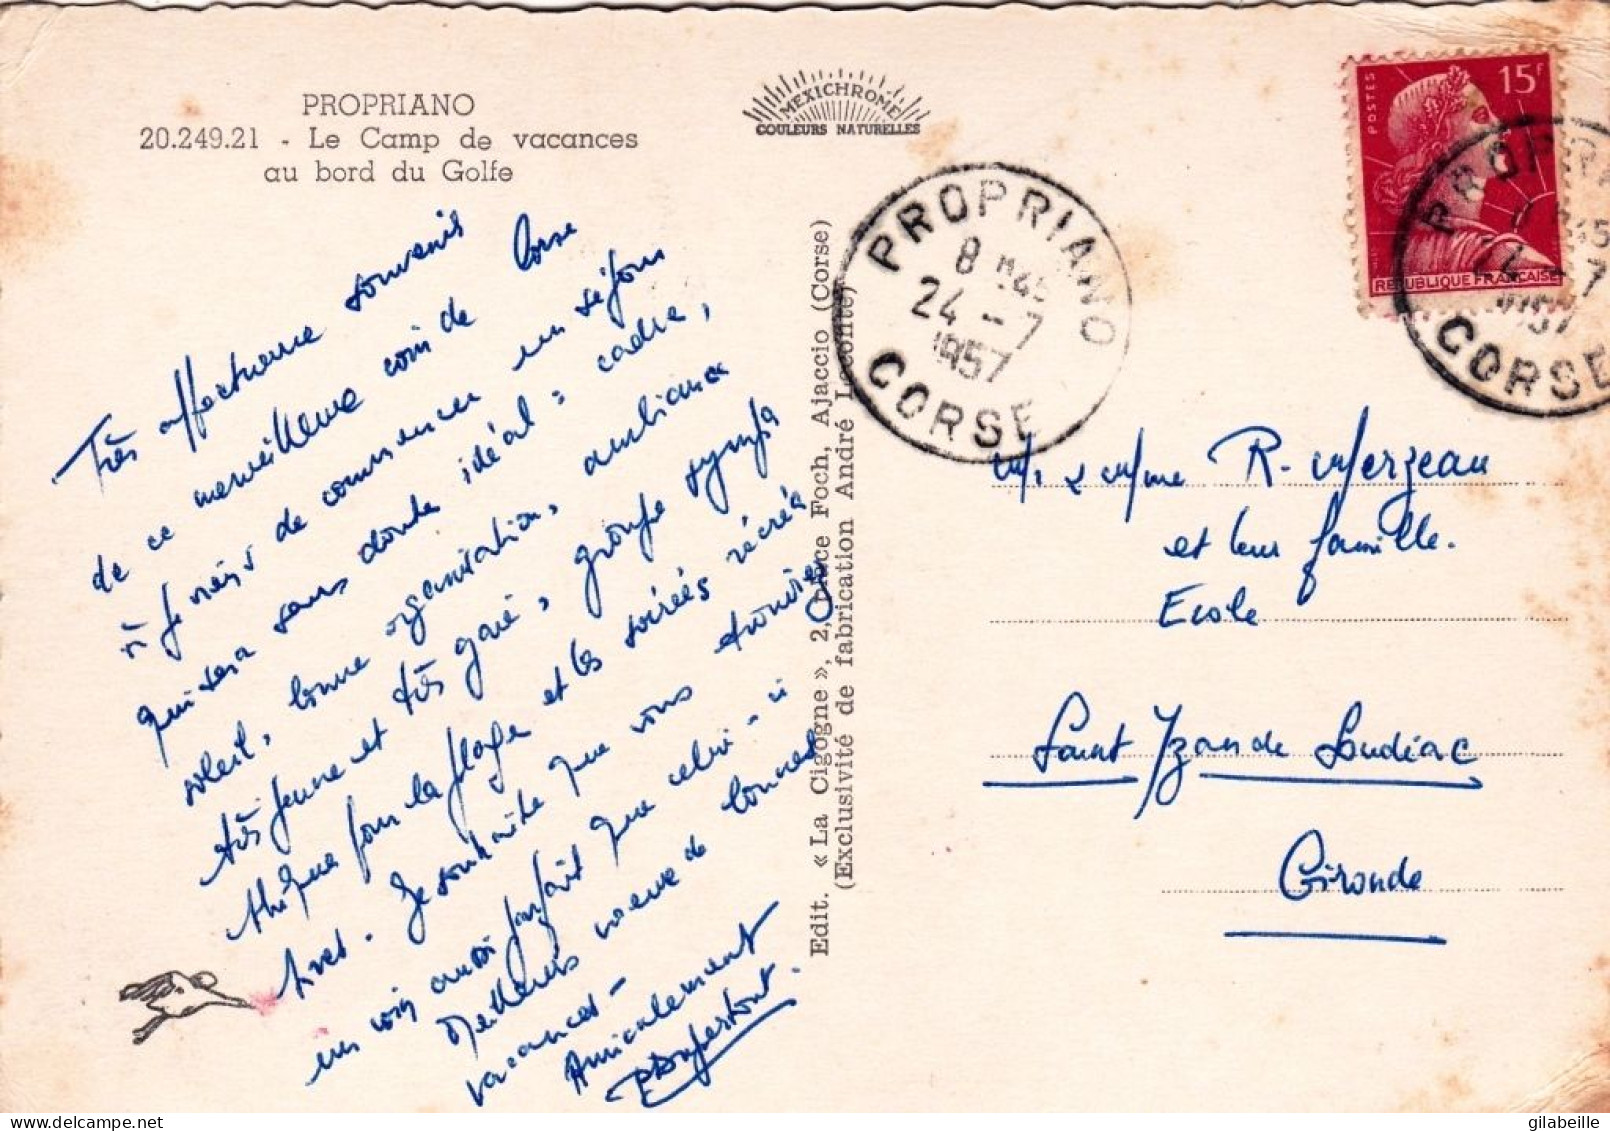 PROPRIANO
20.249.21 - Le Camp de vacances
au bord du Golfe
MEXICHROME
COULEURS NATURELLES
Très affectueux souvenir
de ce merveilleux coin de Corse
où je viens de commencer un séjour
qui sera sans doute idéal : cadre,
soleil, bonne organisation, ambiance
très jeune et très gaie, groupe sympa
thique pour la plage et les soirées récréa
tives. Je souhaite que vous trouviez
un coin aussi parfait que celui-ci
Meilleurs voeux de bonnes
vacances -
Amicalement
Edit. « La Cigogne », 2, place Foch, Ajaccio (Corse)
(Exclusivité de fabrication André Leconte)
PROPRIANO
8 H45
24 - 7
1957
CORSE
POSTES
15F
REPUBLIQUE FRANÇAISE
PROPRIA
45
24 - 7
1957
CORSE
M. & Mme R. Merzeau
et leur famille.
Ecole
Saint Yzan de Soudiac
Gironde
gilabeille